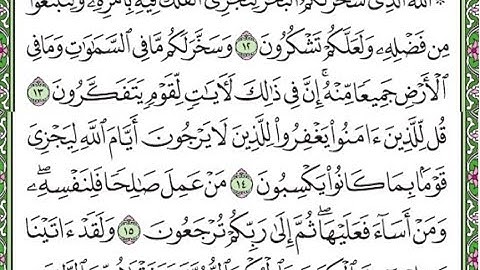 ۞ ٱللَّهُ ٱلَّذِى سَخَّرَ لَكُمُ ٱلْبَحْرَ لِتَجْرِىَ ٱلْفُلْكُ فِيهِ بِأَمْرِهِۦ وَلِتَبْتَغُوا۟
مِن فَضْلِهِۦ وَلَعَلَّكُمْ تَشْكُرُونَ ١٢ وَسَخَّرَ لَكُم مَّا فِى ٱلسَّمَٰوَٰتِ وَمَا فِى
ٱلْأَرْضِ جَمِيعًا مِّنْهُ ۚ إِنَّ فِى ذَٰلِكَ لَءَايَٰتٍ لِّقَوْمٍ يَتَفَكَّرُونَ ١٣
قُل لِّلَّذِينَ ءَامَنُوا۟ يَغْفِرُوا۟ لِلَّذِينَ لَا يَرْجُونَ أَيَّامَ ٱللَّهِ لِيَجْزِىَ
قَوْمًۢا بِمَا كَانُوا۟ يَكْسِبُونَ ١٤ مَنْ عَمِلَ صَٰلِحًا فَلِنَفْسِهِۦ ۖ
وَمَنْ أَسَآءَ فَعَلَيْهَا ۖ ثُمَّ إِلَىٰ رَبِّكُمْ تُرْجَعُونَ ١٥ وَلَقَدْ ءَاتَيْنَا